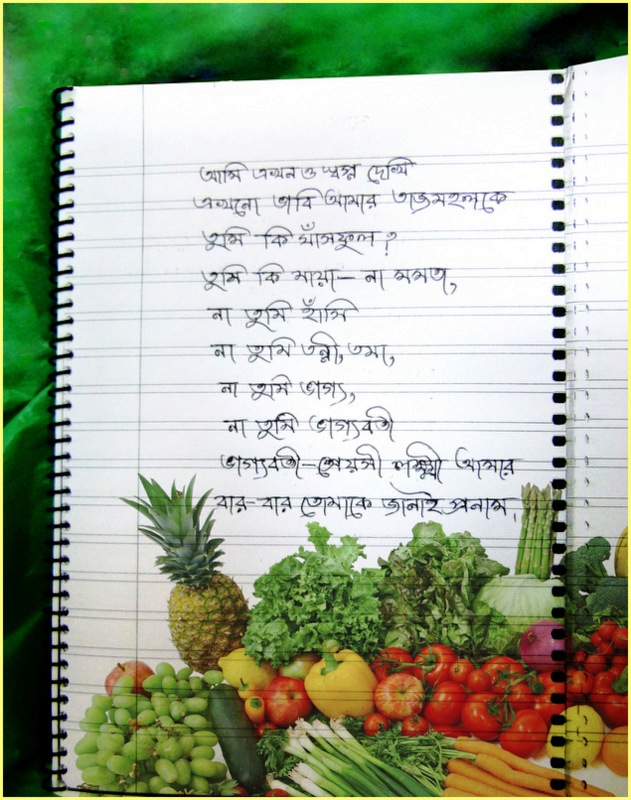 আমি এখন ও স্বপ্ন দেখি
এখনো ভাবি আমার তাজমহলকে
তুমি কি ঘাঁসফুল?
তুমি কি মায়া- না মমতা,
না তুমি হাঁসি
না তুমি তন্নী, তমা,
না তুমি ভাগ্য,
না তুমি ভাগ্যবতী
ভাগ্যবতী-প্রেয়সী লক্ষ্মী আমার
বার-বার তোমাকে জানাই প্রনাম।